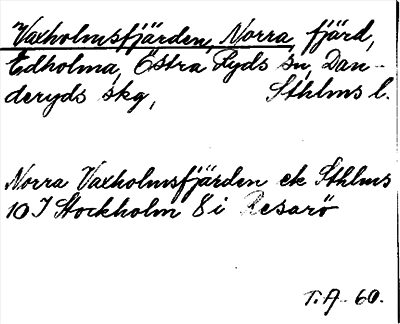 Vaxholmsfjärden, Norra, fjärd,
Edholma, Östra Ryds sn, Dan-
deryds skg, Sthlms l.
Norra Vaxholmsfjärden ek Sthlms
10 I Stockholm 8 i Resarö
T. A. 60.